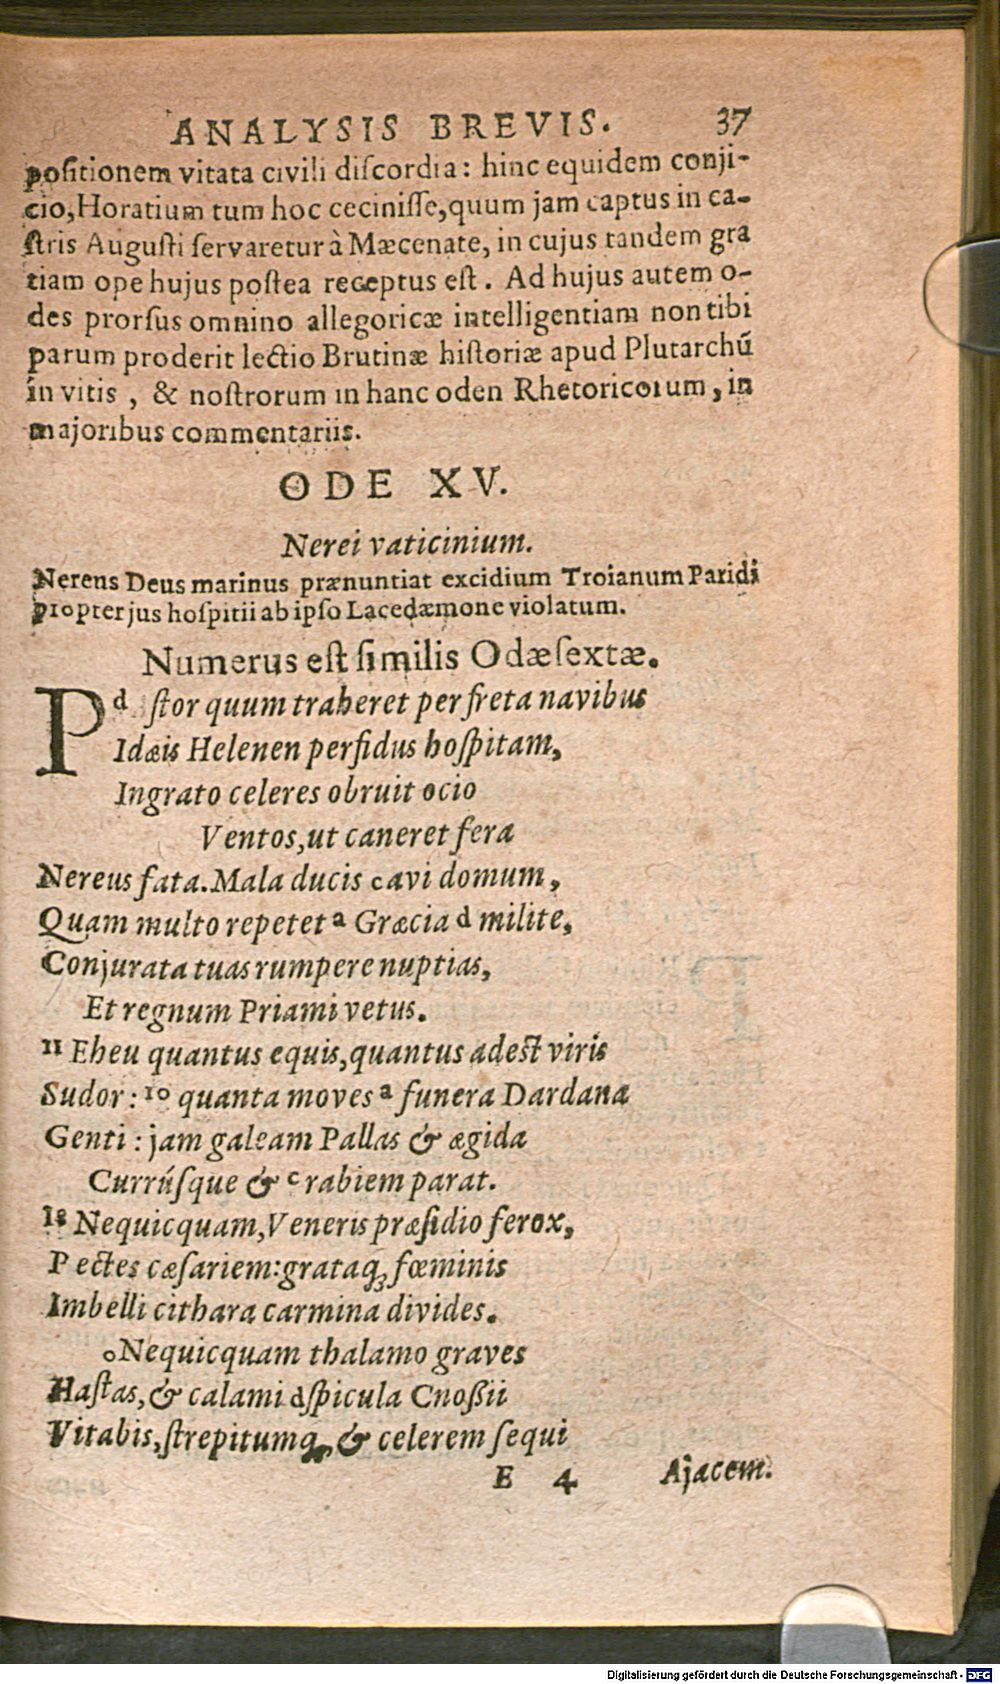 ANALYSIS BREVIS. 37
positionem vitata civili discordia: hinc equidem conji-
cio, Horatium tum hoc cecinisse, quum jam captus in ca-
stris Augusti servaretur à Mæcenate, in cujus tandem gra
tiam ope hujus postea receptus est. Ad hujus autem o-
des prorsus omnino allegoricæ intelligentiam non tibi
parum proderit lectio Brutinæ historiæ apud Plutarchū
in vitis, & nostrorum in hanc oden Rhetoricorum, in
majoribus commentariis.
ODE XV.
Nerei vaticinium.
Nereus Deus marinus prænuntiat excidium Troianum Paridi
propter jus hospitii ab ipso Lacedæmone violatum.
Numerus est similis Odæ sextæ.
P d stor quum traheret per freta navibus
Idæis Helenen perfidus hospitam,
Ingrato celeres obruit ocio
Ventos, ut caneret fera
Nereus fata. Mala ducis cavi domum,
Quam multo repetet a Græcia d milite,
Conjurata tuas rumpere nuptias,
Et regnum Priami vetus.
11 Eheu quantus equis, quantus adest viris
Sudor: 10 quanta moves a funera Dardana
Genti: jam galeam Pallas & ægida
Currúsque & c rabiem parat.
Nequicquam, Veneris præsidio ferox,
Pectes cæsariem: grataq; fœminis
Imbelli cithara carmina divides.
o Nequicquam thalamo graves
Hastas, & calami d spicula Cnossii
Vitabis, strepitumq, & celerem sequi
E 4 Ajacem.
Digitalisierung gefördert durch die Deutsche Forschungsgemeinschaft - DFG